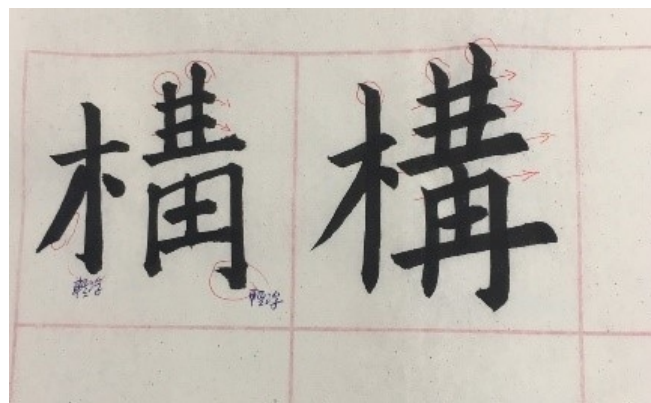 構 構
輕浮
輕浮